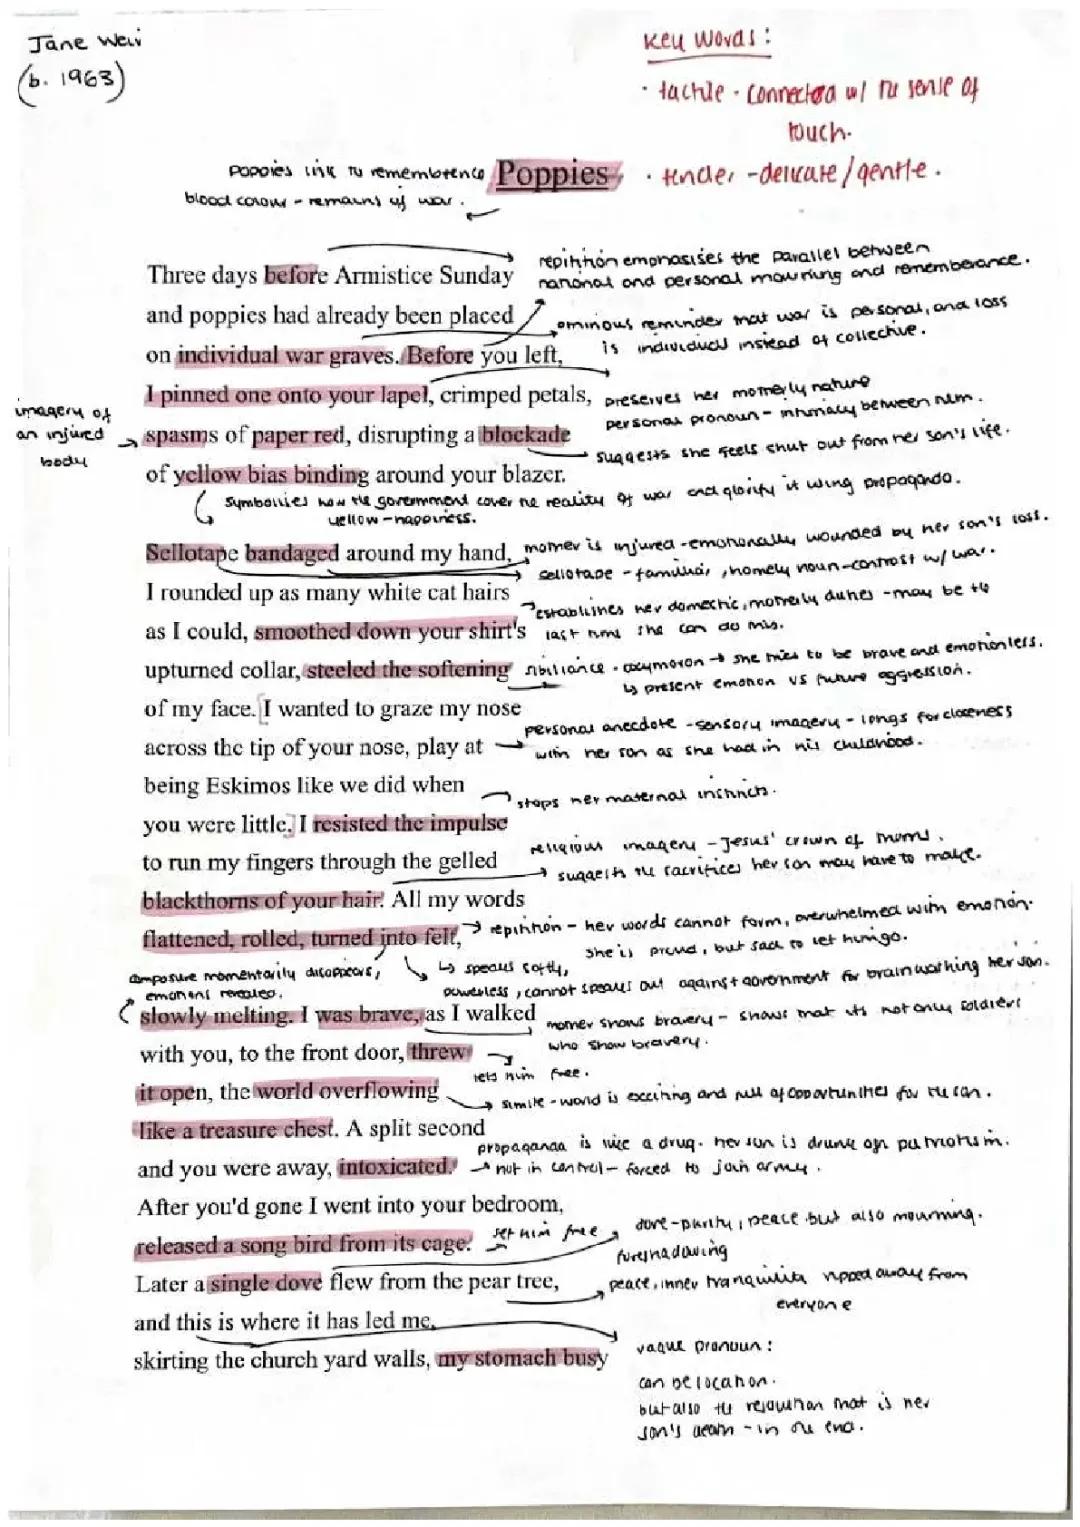 Jane Weir
(b. 1963)
Key Words:
· tactile - connected w/ the sense of
touch.
· tender - delicate / gentle.
poppies link to rememberence
blood colour - remains of war.
Poppies
Three days before Armistice Sunday
repitition emphasises the parallel between
national and personal mourning and rememberance.
and poppies had already been placed
ominous reminder that war is personal, and loss
is individual instead of collective.
on individual war graves. Before you left,
I pinned one onto your lapel, crimped petals,
preserves her motherly nature
personal pronoun - intimacy between them.
imagery of
an injured
body
spasms of paper red, disrupting a blockade
suggests she feels shut out from her son's life.
of yellow bias binding around your blazer.
symbolises how the government cover the reality of war and glorify it using propaganda.
yellow - happiness.
Sellotape bandaged around my hand,
mother is injured - emotionally wounded by her son's loss.
sellotape - familiar, homely noun - contrast w/ war.
I rounded up as many white cat hairs
establishes her domestic, motherly duties - may be the
last time she can do this.
as I could, smoothed down your shirt's
upturned collar, steeled the softening
sibiliance · oxymoron → she tries to be brave and emotionless.
↳ present emotion vs future aggression.
of my face. I wanted to graze my nose
personal anecdote - sensory imagery - longs for closeness
with her son as she had in his childhood.
across the tip of your nose, play at
being Eskimos like we did when
stops her maternal instincts.
you were little. I resisted the impulse
to run my fingers through the gelled
religious imagery - Jesus' crown of thorns.
suggests the sacrifices her son may have to make.
blackthorns of your hair. All my words
flattened, rolled, turned into felt,
repitition - her words cannot form, overwhelmed with emotion.
she is proud, but sad to let him go.
↳ speaks softly,
powerless, cannot speak out against government for brainwashing her son.
composure momentarily disappears,
emotions revealed.
slowly melting. I was brave, as I walked
mother shows bravery - shows that its not only soldiers
who show bravery.
with you, to the front door, threw
lets him free.
it open, the world overflowing
simile - world is exciting and full of opportunities for the son.
like a treasure chest. A split second
propaganda is like a drug. her son is drunk on patriotism.
and you were away, intoxicated.
not in control - forced to join army.
After you'd gone I went into your bedroom,
released a song bird from its cage.
set him free
dove - purity, peace but also mourning.
foreshadowing
Later a single dove flew from the pear tree,
peace, inner tranquility ripped away from
everyone
and this is where it has led me,
skirting the church yard walls, my stomach busy
vague pronoun:
can be location.
but also the resolution that is her
son's death - in the end.